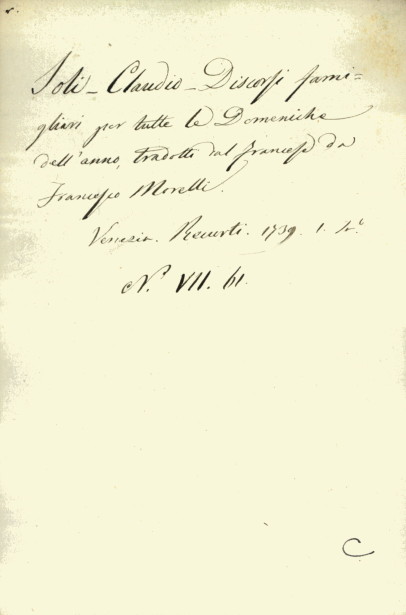 Joli - Claudio - Discorsi fami-
gliari per tutte le Domeniche
dell'anno, tradotti dal francese da
Francesco Morelli.
Venezia. Recurti. 1739. 1.
N.° VII. 61.
C